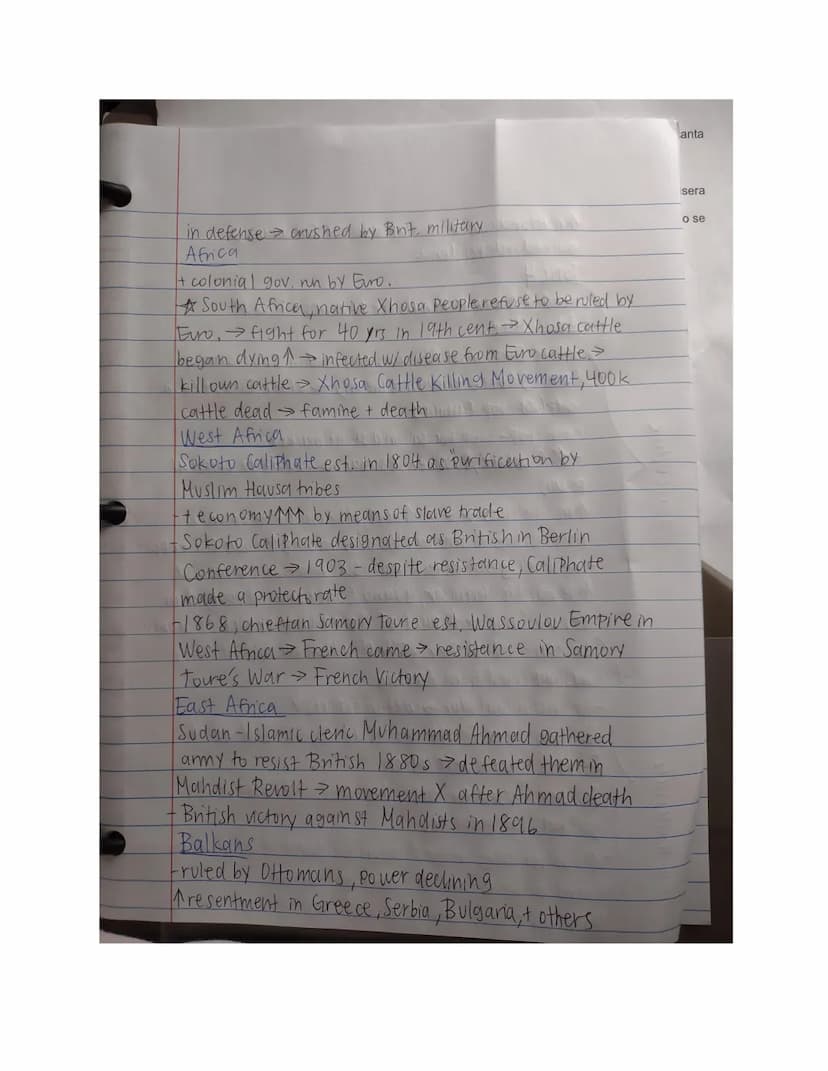 anta
sera
o se
in defense → crushed by Brit. military
Africa
+ colonial gov. run by Euro.
☆ South Africa, native Xhosa people refuse to be ruled by
Euro. → fight for 40 yrs in 19th cent. → Xhosa cattle
began dying ↑ → infected w/ disease from Euro cattle →
kill own cattle → Xhosa Cattle Killing Movement, 400k
cattle dead → famine + death
West Africa
Sokoto Caliphate est. in 1804 as "purification by
Muslim Hausa tribes
- + economy ↑↑↑ by means of slave trade
- Sokoto Caliphate designated as British in Berlin
Conference → 1903 - despite resistance, Caliphate
made a protectorate
- 1868, chieftan Samory Toure est. Wassoulou Empire in
West Africa → French came → resistance in Samory
Toure's War → French Victory
East Africa
Sudan - Islamic cleric Muhammad Ahmad gathered
army to resist British 1880s → defeated them in
Mahdist Revolt → movement X after Ahmad death
- British victory against Mahdists in 1896
Balkans
- ruled by Ottomans, power declining
↑ resentment in Greece, Serbia, Bulgaria, + others